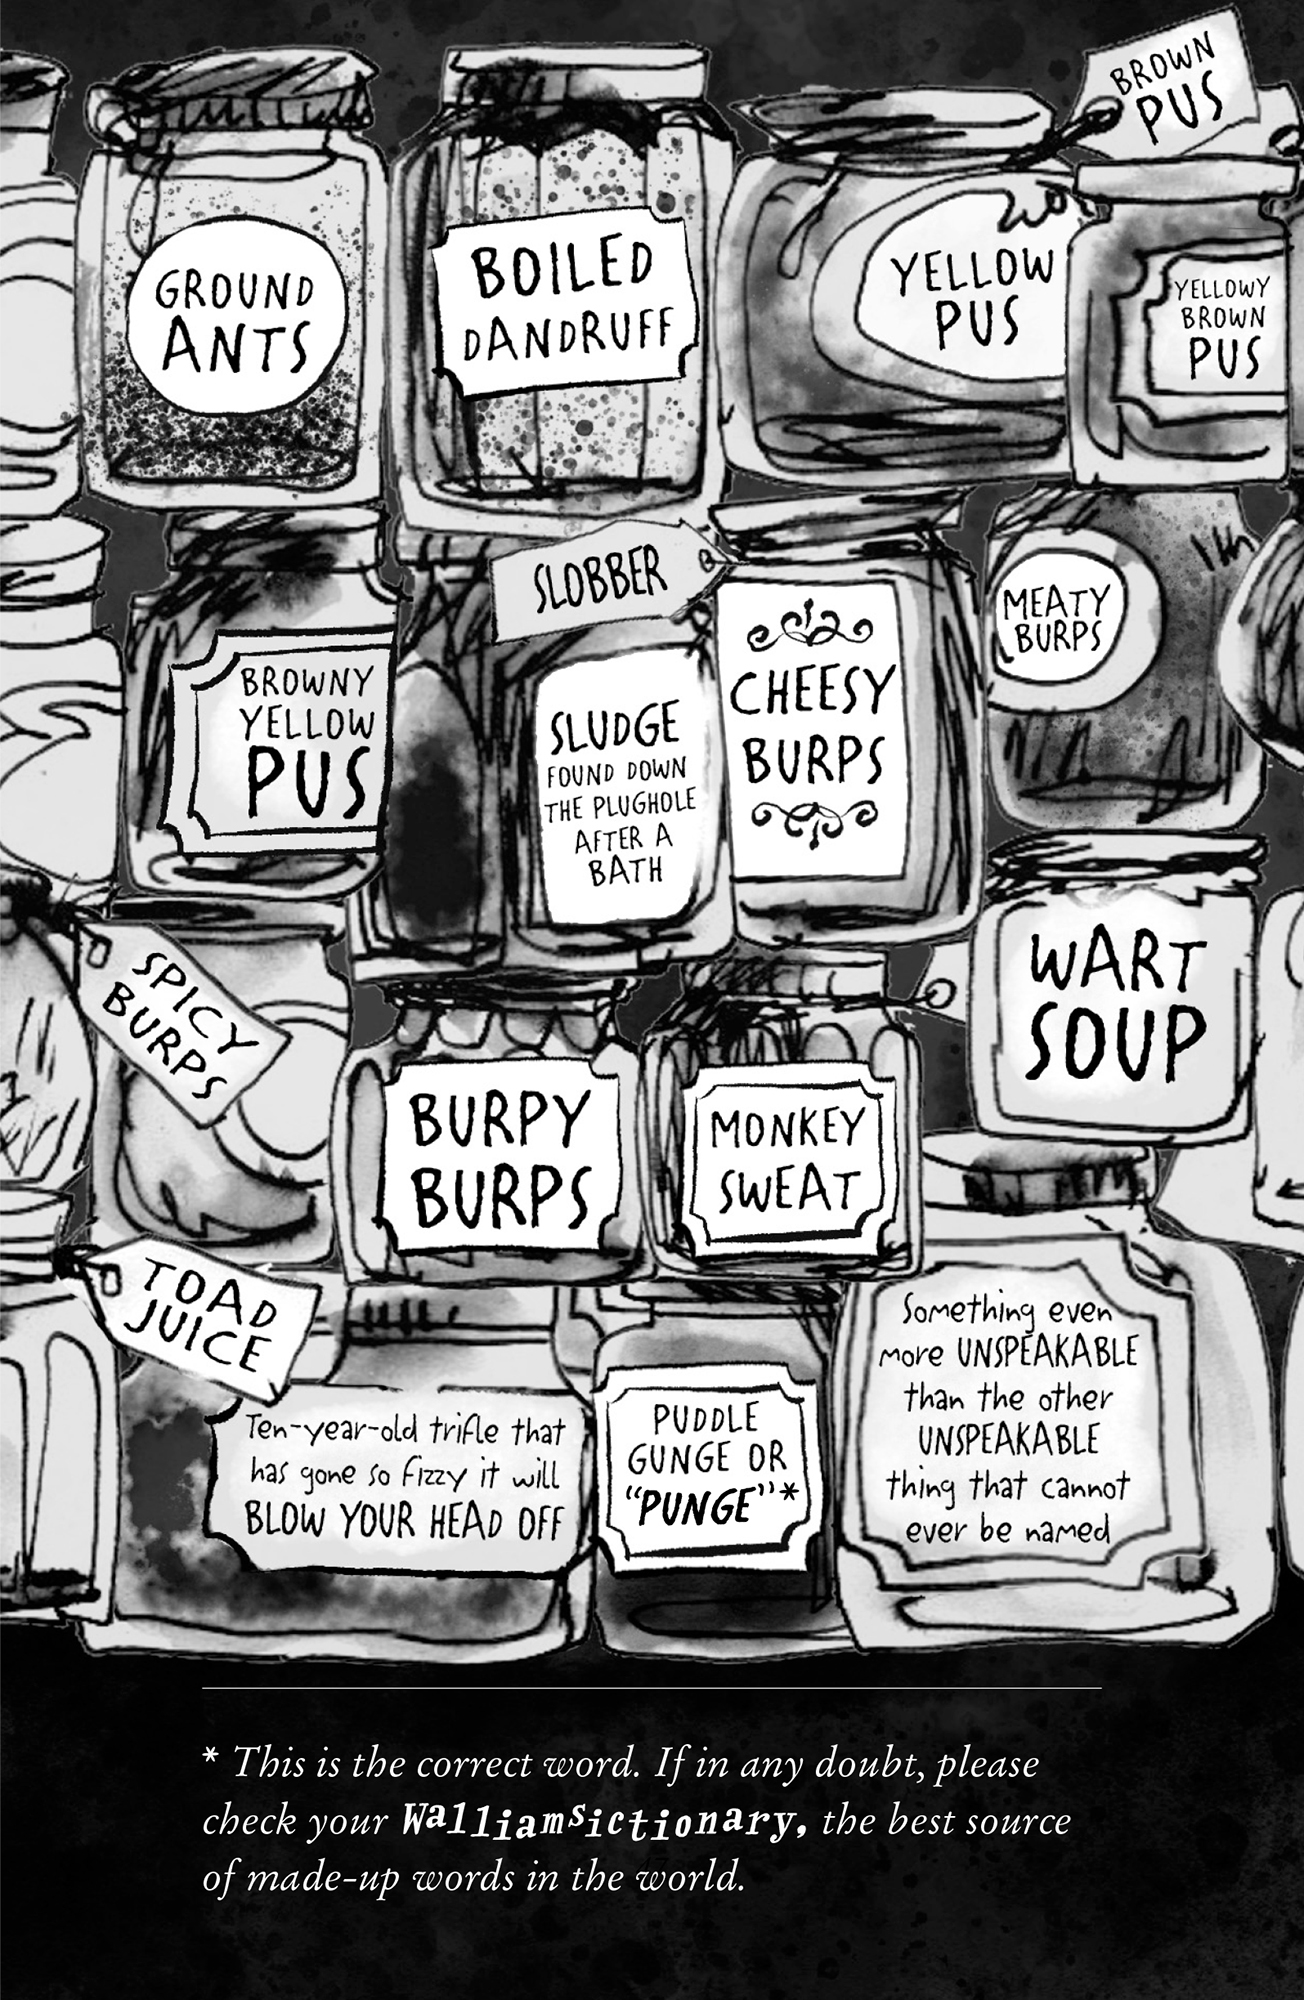 BROWN
PUS
GROUND
ANTS
BOILED
DANDRUFF
YELLOW
PUS
YELLOWY
BROWN
PUS
SLOBBER
MEATY
BURPS
BROWNY
YELLOW
PUS
SLUDGE
FOUND DOWN
THE PLUGHOLE
AFTER A
BATH
CHEESY
BURPS
WART
SOUP
SPICY
BURPS
BURPY
BURPS
MONKEY
SWEAT
TOAD
JUICE
Ten-year-old trifle that
has gone so fizzy it will
BLOW YOUR HEAD OFF
PUDDLE
GUNGE OR
“PUNGE”*
Something even
more UNSPEAKABLE
than the other
UNSPEAKABLE
thing that cannot
ever be named
* This is the correct word. If in any doubt, please
check your Walliamsictionary, the best source
of made-up words in the world.